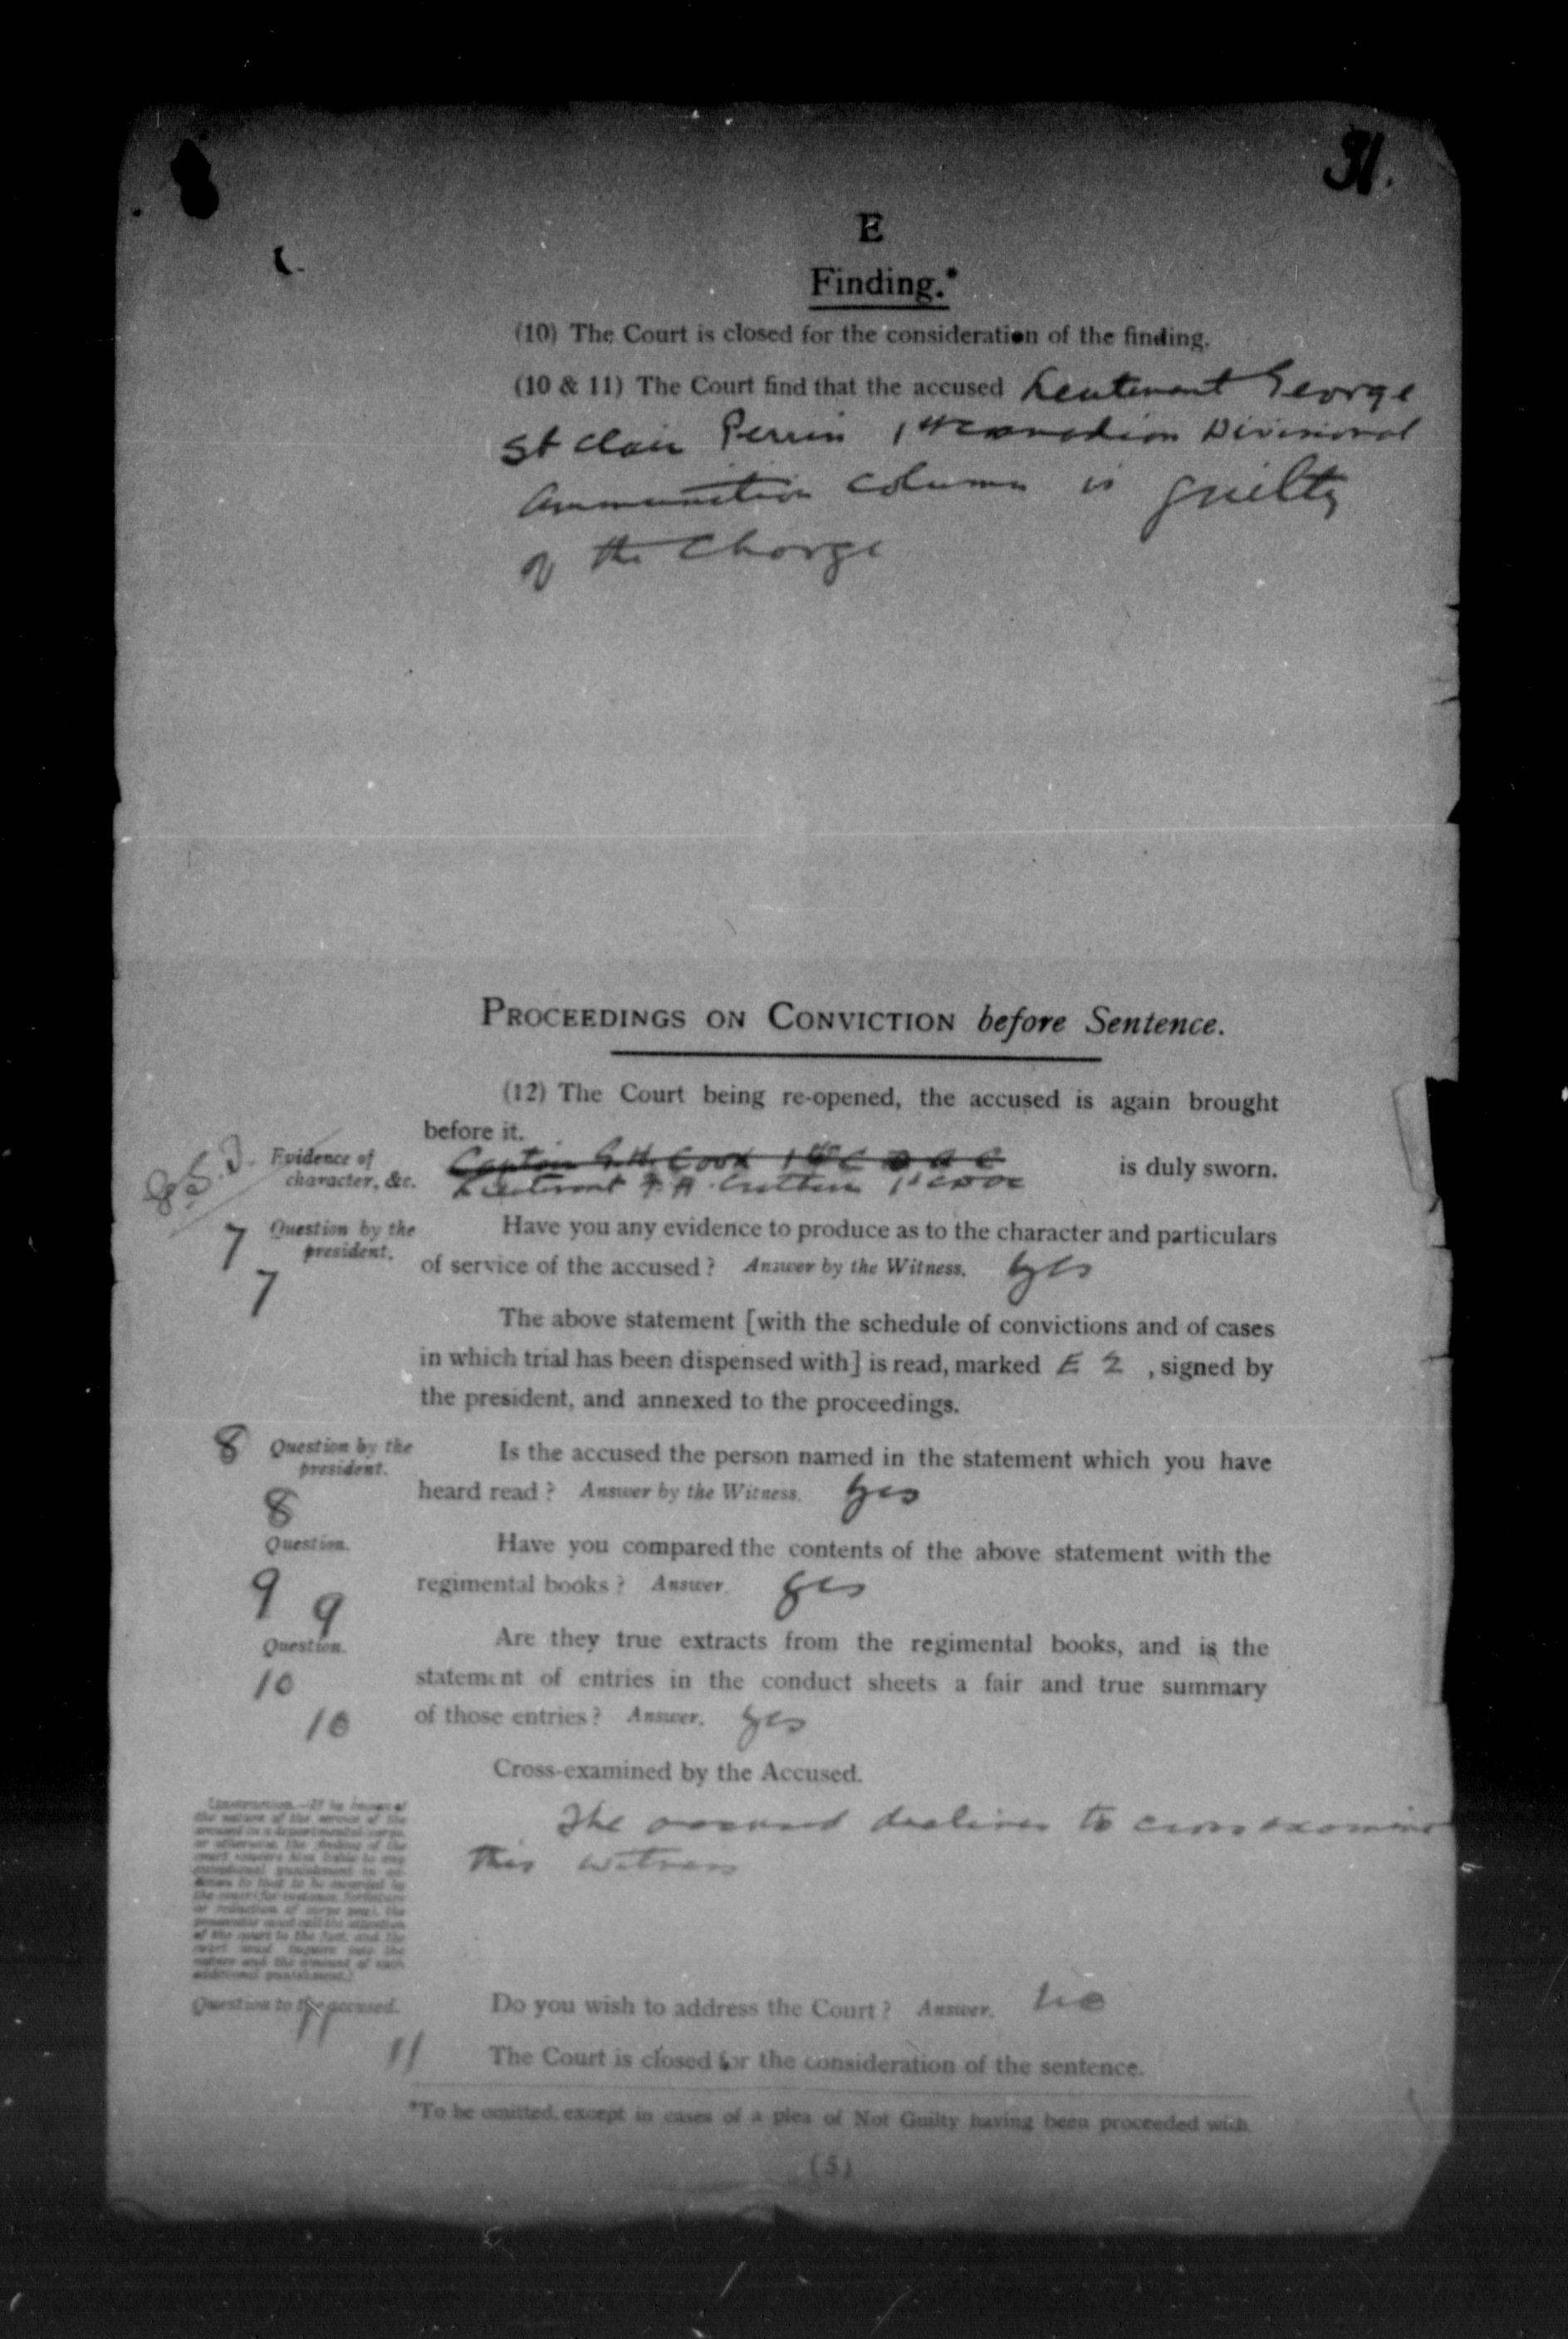 31.
E
Finding.*
(10) The Court is closed for the consideration of the finding.
(10 & 11) The Court find that the accused Lieutenant George
St Clair Perrin 1st Canadian Divisional
Ammunition Column is guilty
of the Charge
PROCEEDINGS ON CONVICTION before Sentence.
(12) The Court being re-opened, the accused is again brought
before it.
Evidence of
character, &c.
Captain G.H. Cook 1st C D A C
is duly sworn.
Lieutenant F. A. 1st CDAC
7 Question by the
president.
7
Have you any evidence to produce as to the character and particulars
of service of the accused? Answer by the Witness. Yes
The above statement [with the schedule of convictions and of cases
in which trial has been dispensed with] is read, marked E 2, signed by
the president, and annexed to the proceedings.
8 Question by the
president.
8
Is the accused the person named in the statement which you have
heard read? Answer by the Witness. Yes
Question.
9 9
Have you compared the contents of the above statement with the
regimental books? Answer. Yes
Question.
10
10
Are they true extracts from the regimental books, and is the
statement of entries in the conduct sheets a fair and true summary
of those entries? Answer. Yes
Cross-examined by the Accused.
The accused declines to cross examine
this witness
Question to the accused.
11
Do you wish to address the Court? Answer. No
11
The Court is closed for the consideration of the sentence.
*To be omitted, except in cases of a plea of Not Guilty having been proceeded with.
(5)